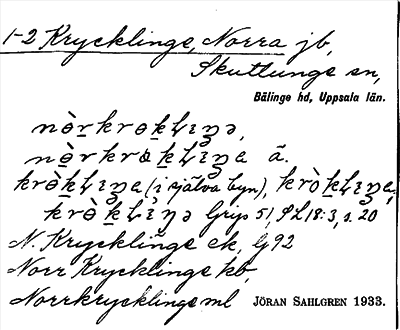 1-2 Krycklinge, Norra jb,
Skuttunge sn,
Bälinge hd, Uppsala län.
nò̱rkrøḵlɩŋə,
nò̱rkrøḵlɩŋa ä.
krø̀ḵlɩŋa (i själva byn), krø̀ḵlɩŋa,
krø̀ḵlɩŋə Grip s 5, SL 18:3, s. 20
N. Krycklinge ek, lg 92
Norr Krycklinge kb,
Norrkrycklinge ml JÖRAN SAHLGREN 1933.